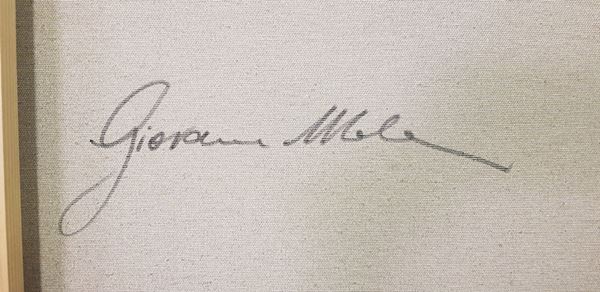 Giovanni Mele